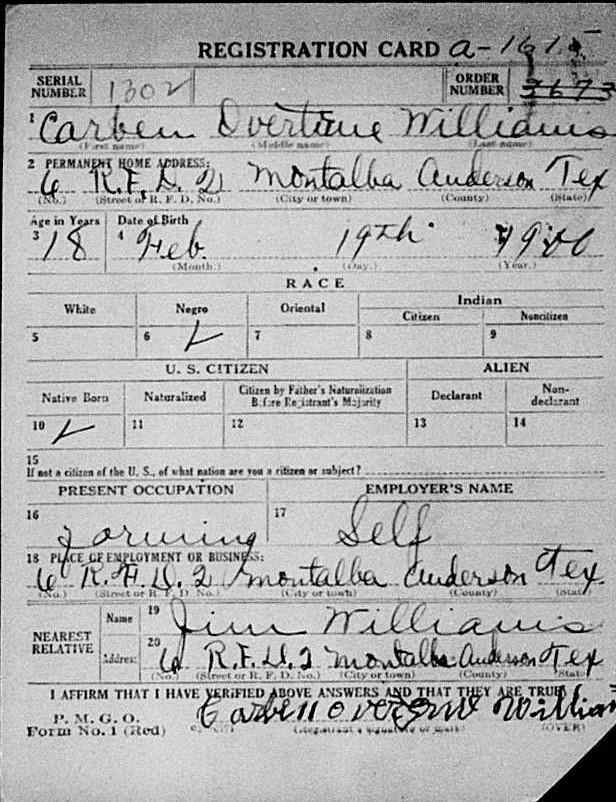 REGISTRATION CARD a-1613
SERIAL NUMBER 1302 ORDER NUMBER 3673
1 Carben Overtine Williams
(First name) (Middle name) (Last name)
2 PERMANENT HOME ADDRESS:
6 R.F.D. 2 Montalba Anderson Tex
(No.) (Street or R. F. D. No.) (City or town) (County) (State)
Age in Years Date of Birth
3 18 4 Feb. 19th. 1900
(Month.) (Day.) (Year.)
RACE
White Negro Oriental Indian
Citizen Noncitizen
5 6 ✓ 7 8 9
U. S. CITIZEN ALIEN
Native Born Naturalized Citizen by Father's Naturalization Before Registrant's Majority Declarant Non-declarant
10 ✓ 11 12 13 14
15
If not a citizen of the U. S., of what nation are you a citizen or subject?
PRESENT OCCUPATION EMPLOYER'S NAME
16 Farming 17 Self
18 PLACE OF EMPLOYMENT OR BUSINESS:
6 R.F.D. 2 Montalba Anderson Tex
(No.) (Street or R. F. D. No.) (City or town) (County) (State)
NEAREST RELATIVE Name 19 Jim Williams
Address 20 6 R.F.D. 2 Montalba Anderson Tex
(No.) (Street or R. F. D. No.) (City or town) (County) (State)
I AFFIRM THAT I HAVE VERIFIED ABOVE ANSWERS AND THAT THEY ARE TRUE
P. M. G. O.
Form No. 1 (Red) Carben Williams
(Registrant's signature or mark) (OVER)